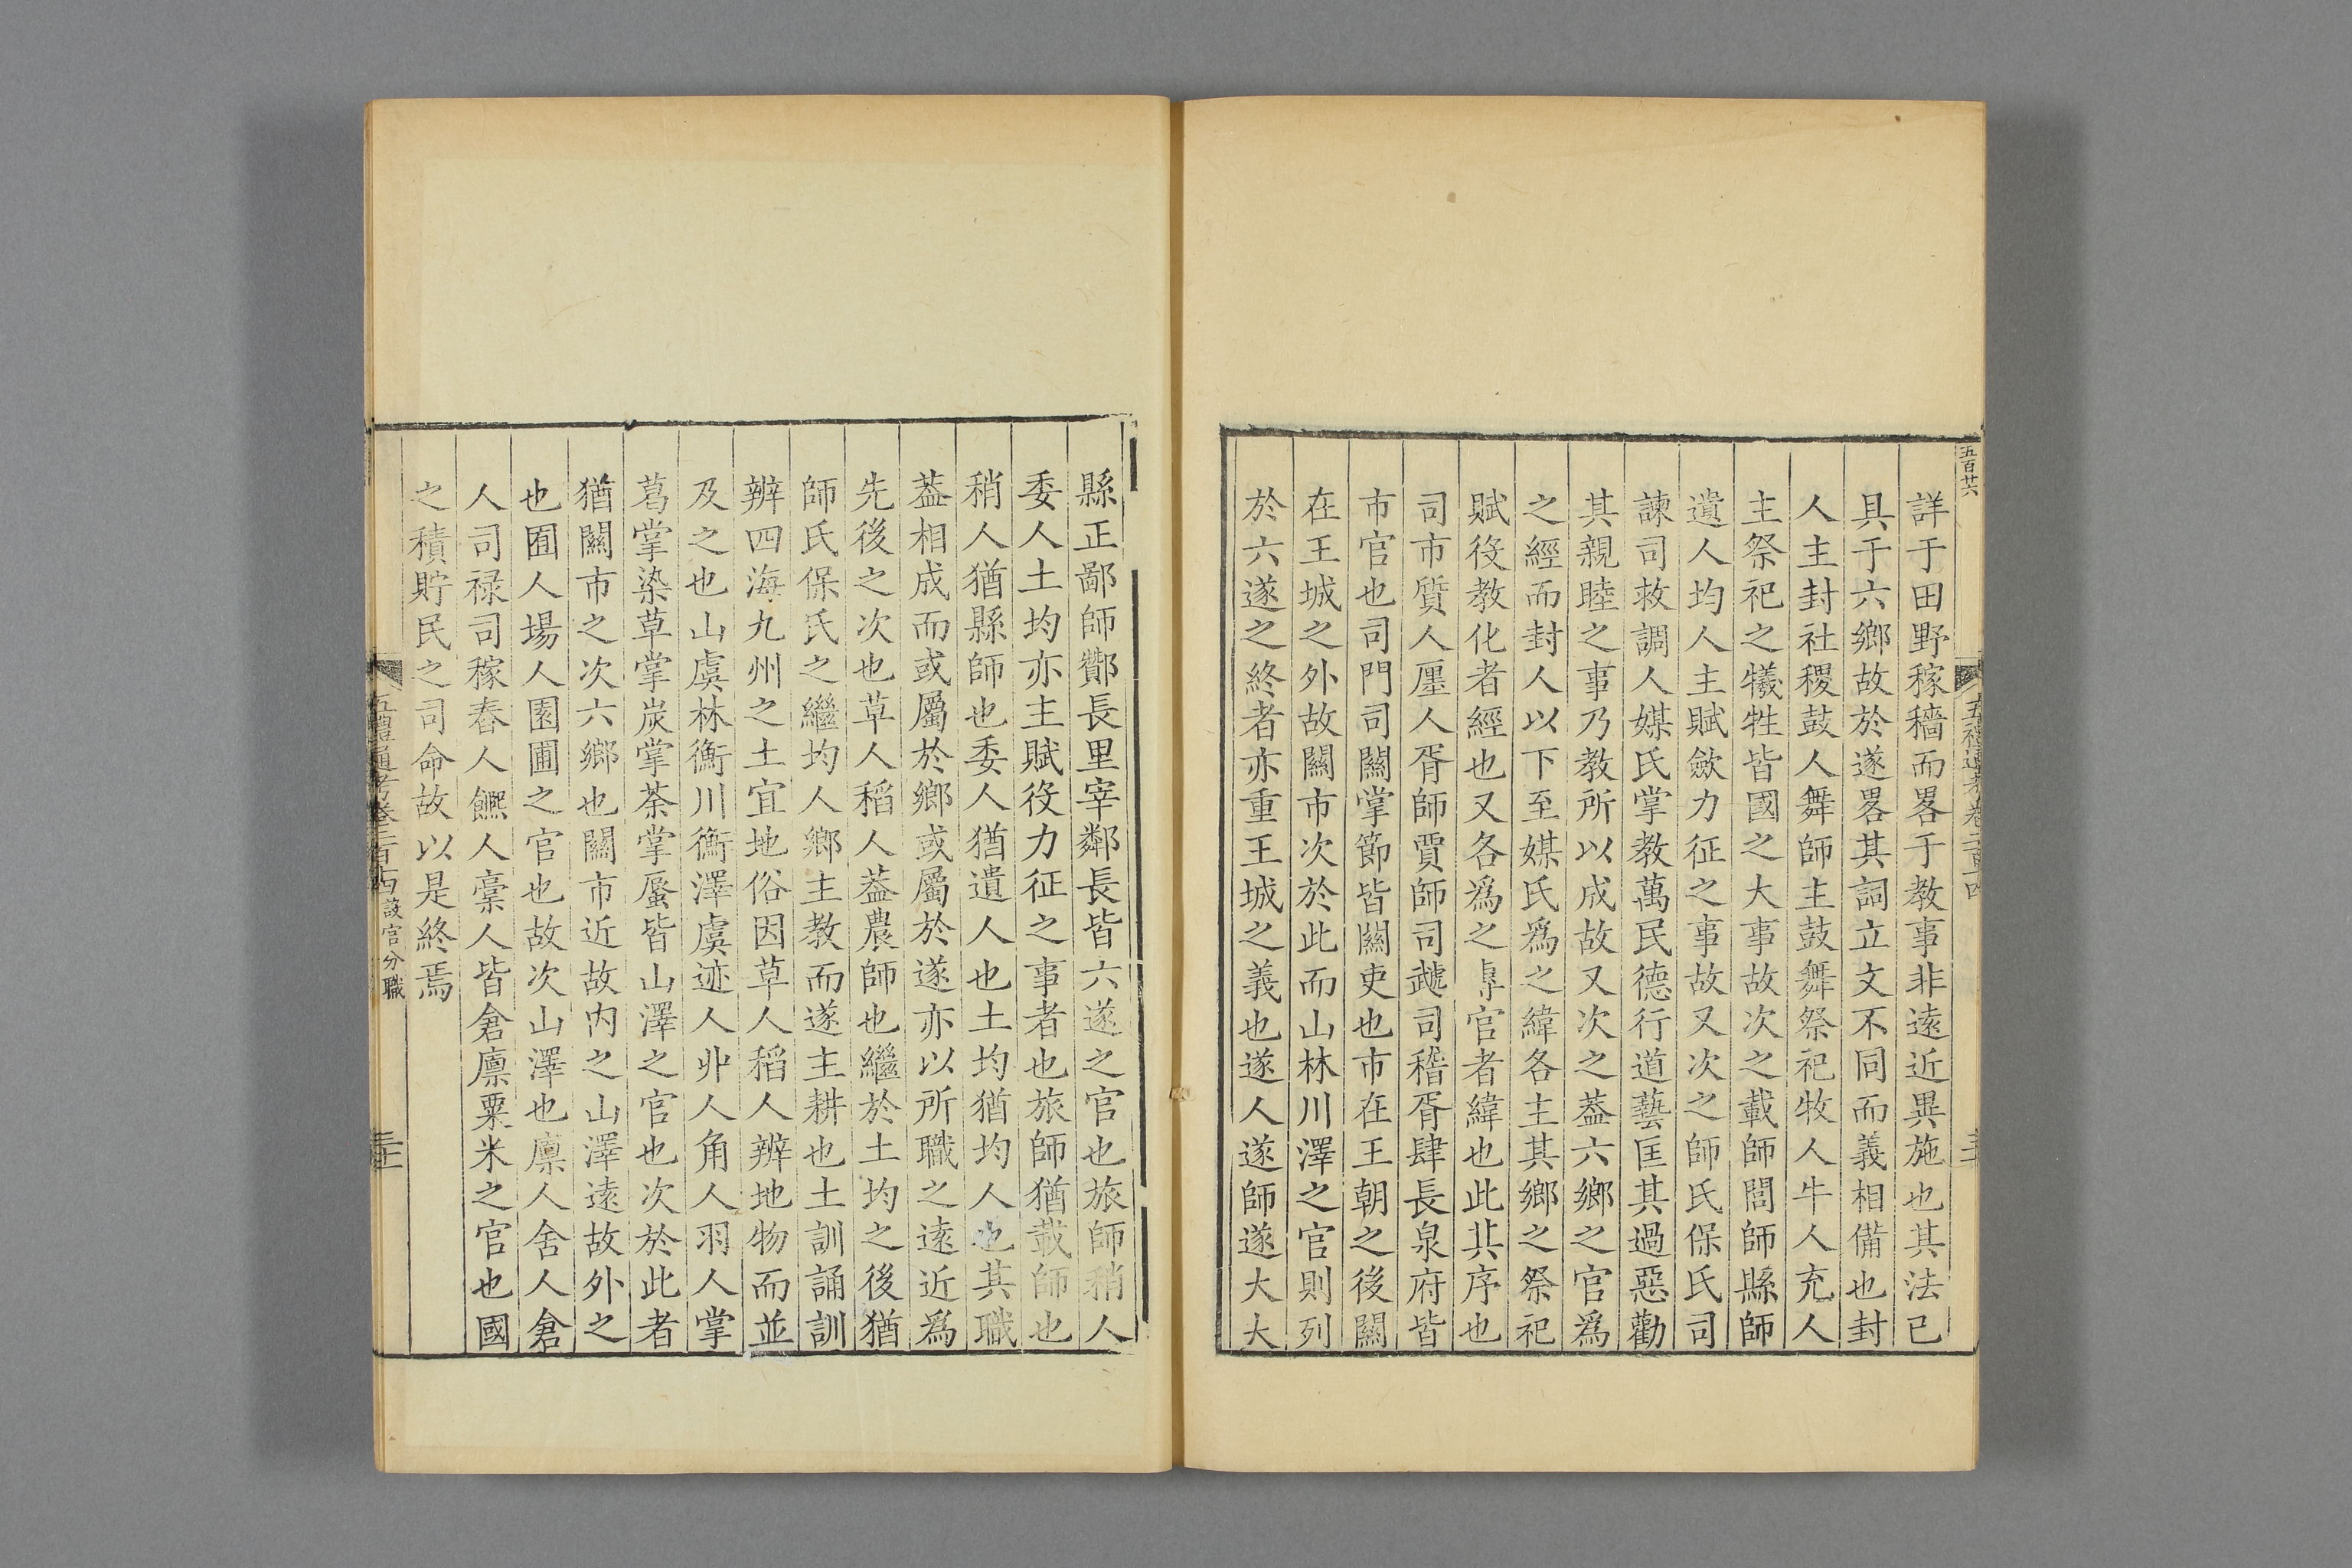 五百廿六
詳于田野稼穡而畧于教事非遠近異施也其法已
具于六鄉故於遂畧其詞立文不同而義相備也封
人主封社稷鼓人舞師主鼓舞祭祀牧人牛人充人
主祭祀之犧牲皆國之大事故次之載師閭師縣師
遺人均人主賦斂力征之事故又次之師氏保氏司
諫司救調人媒氏掌教萬民德行道藝匡其過惡勸
其親睦之事乃教所以成故又次之葢六鄉之官爲
之經而封人以下至媒氏爲之緯各主其鄉之祭祀
賦役教化者經也又各爲之專官者緯也此其序也
司市質人廛人胥師賈師司虣司稽胥肆長泉府皆
市官也司門司關掌節皆關吏也市在王朝之後關
在王城之外故關市次於此而山林川澤之官則列
於六遂之終者亦重王城之義也遂人遂師遂大大
縣正鄙師酇長里宰鄰長皆六遂之官也旅師稍人
委人土均亦主賦役力征之事者也旅師猶載師也
稍人猶縣師也委人猶遺人也土均猶均人也其職
葢相成而或屬於鄉或屬於遂亦以所職之遠近爲
先後之次也草人稻人葢農師也繼於土均之後猶
師氏保氏之繼均人鄉主教而遂主耕也土訓誦訓
辨四海九州之土宜地俗因草人稻人辨地物而並
及之也山虞林衡川衡澤虞迹人丱人角人羽人掌
葛掌染草掌炭掌荼掌蜃皆山澤之官也次於此者
猶關市之次六鄉也關市近故內之山澤遠故外之
也囿人場人園圃之官也故次山澤也廩人舍人倉
人司祿司稼舂人饎人稾人皆倉廩粟米之官也國
之積貯民之司命故以是終焉
五禮通考卷二百十四 設官分職